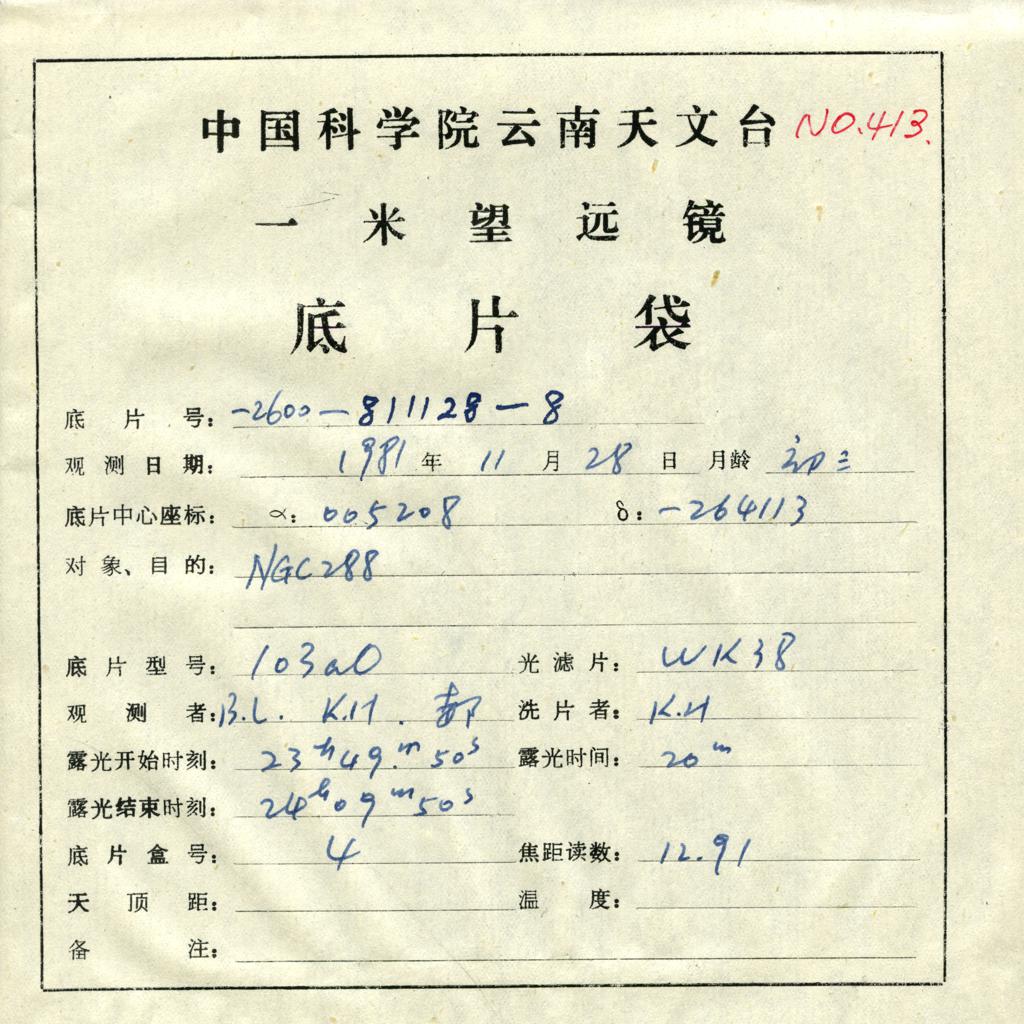 中国科学院云南天文台 NO.413.
一米望远镜
底片袋
底片号: -2600-811128-8
观测日期: 1981年11月28日 月龄 初三
底片中心座标: α: 005208 δ: -264113
对象、目的: NGC288
底片型号: 103aO 光滤片: WK38
观测者: B.L. K.H.
洗片者: K.H
露光开始时刻: 23h49m50s 露光时间: 20m
露光结束时刻: 24h09m50s
底片盒号: 4 焦距读数: 12.91
天顶距: 温度:
备注: